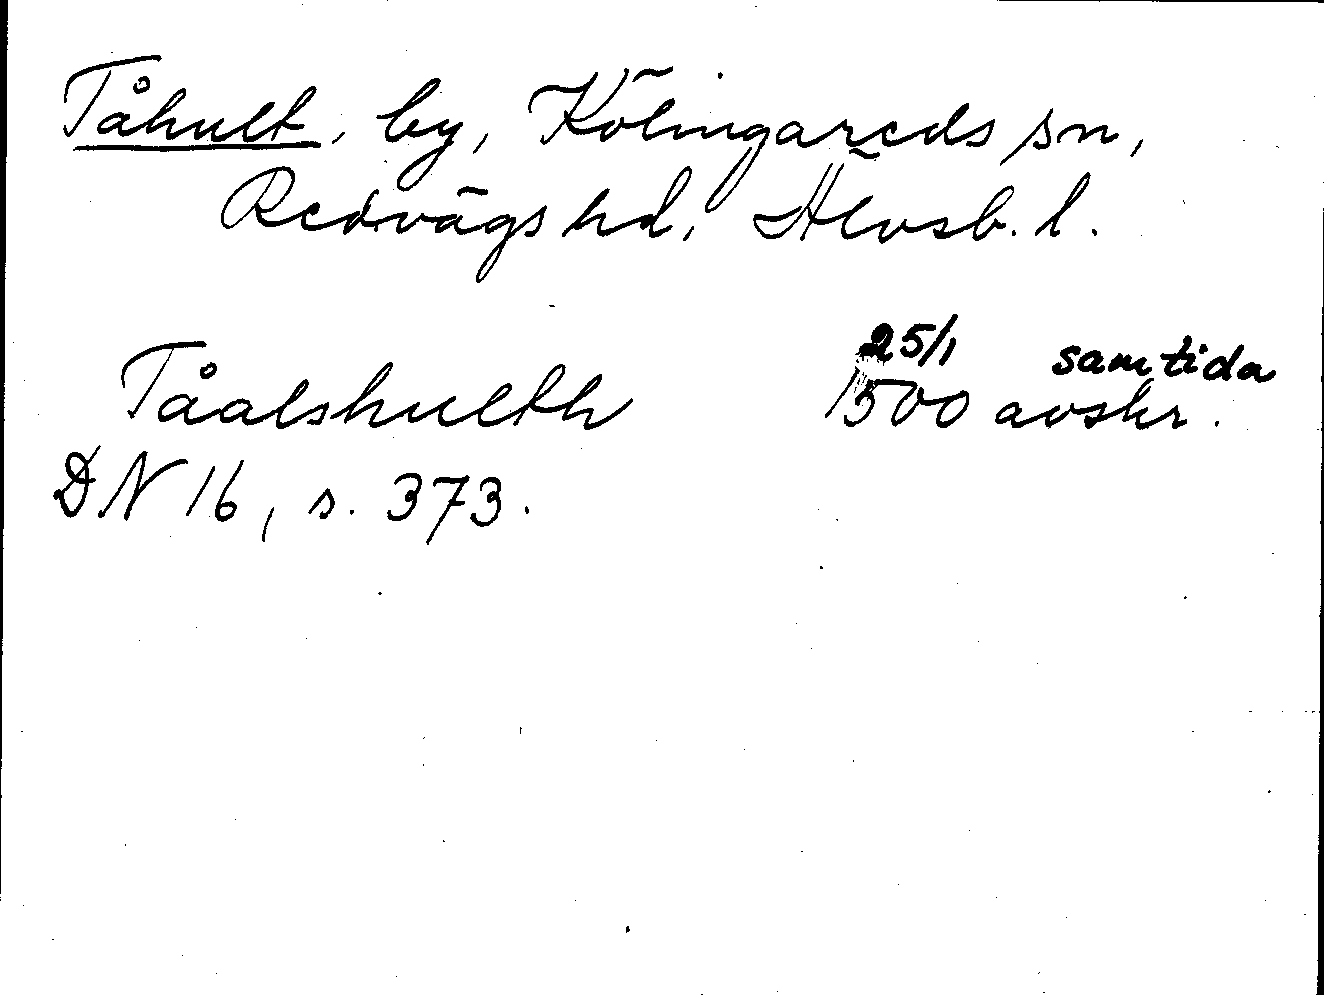 Tåhult, by, Kölingareds sn,
Redvägs hd, Älvsb. l.
25/1 samtida
Tåalshulth 1500 avskr.
DN 16, s. 373.